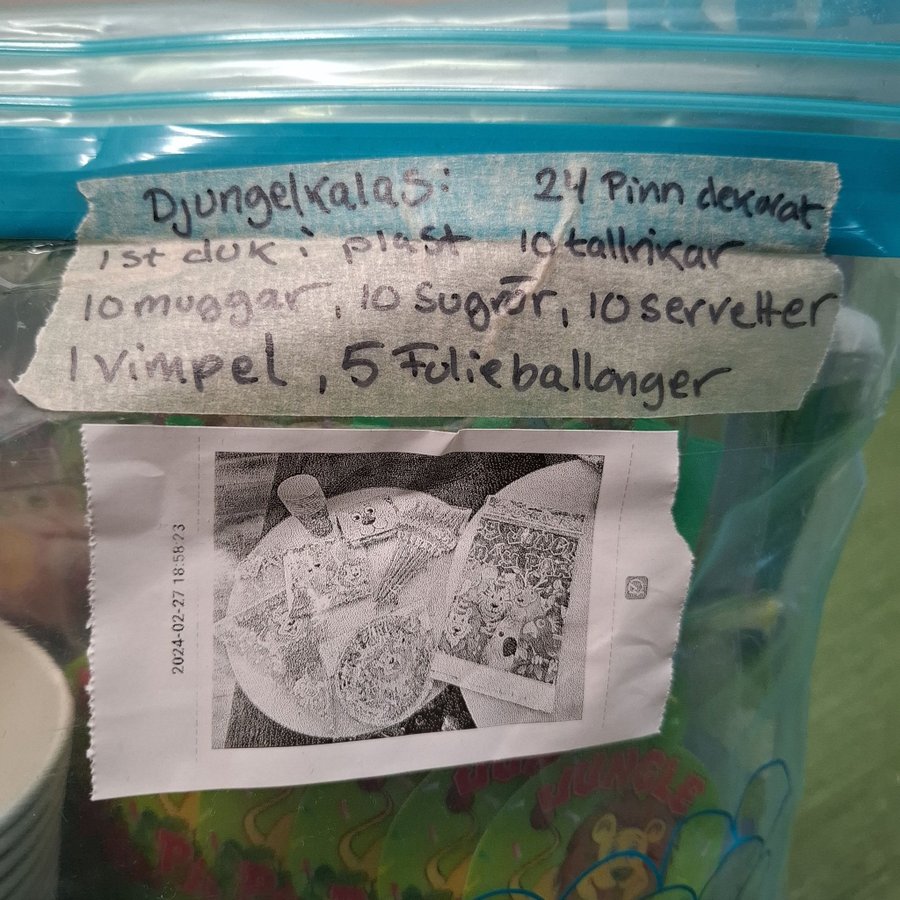 Djungelkalas: 24 Pinn dekorat
1st duk i plast 10 tallrikar
10 muggar, 10 Sugrör, 10 servetter
1 Vimpel, 5 Folieballonger
2024-02-27 18:58:23
JUNGLE